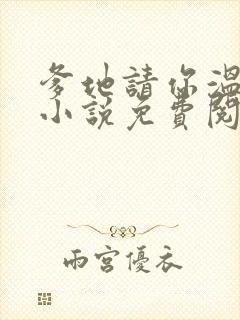 爹地請你溫
小說免費閱
雨宮優衣